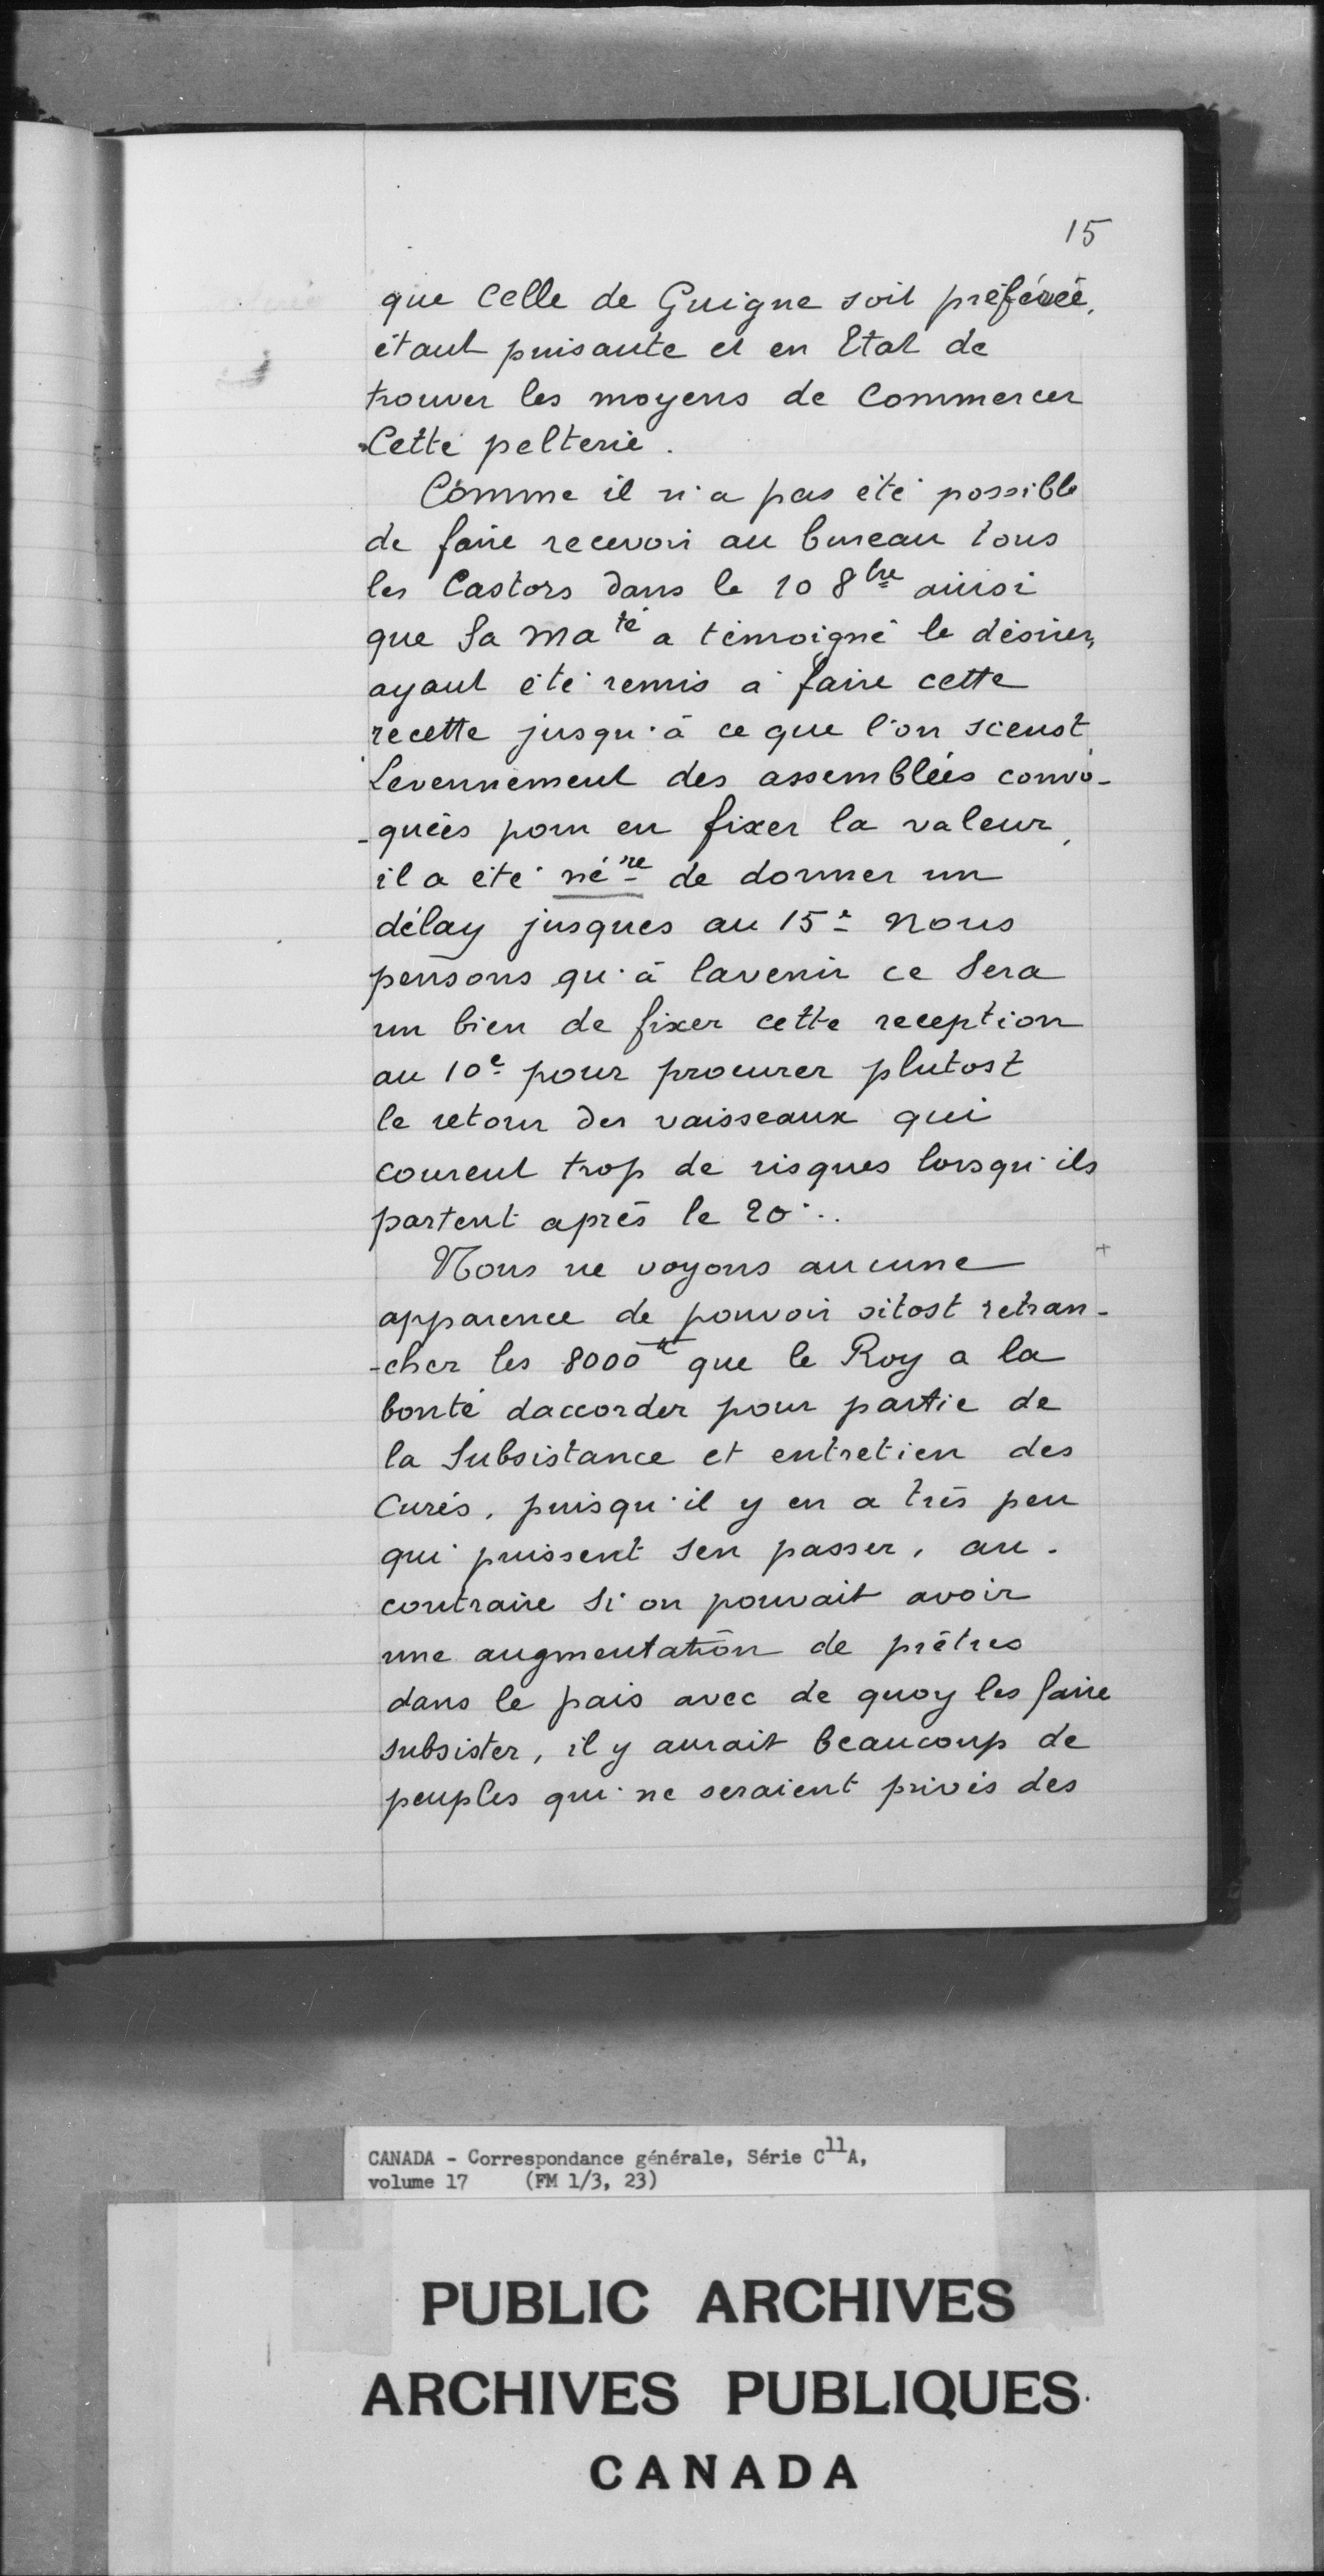 15
que Celle de Guigne soit préférée,
étant puisante et en Etat de
trouver les moyens de Commercer
Cette pelterie.
Comme il n'a pas été possible
de faire recevoir au bureau tous
les Castors dans le 10 8bre ainsi
que Sa Maté a témoigné le désirer,
ayant été remis à faire cette
recette jusqu'à ce que l'on sceust
Levennement des assemblées convo-
-quées pour en fixer la valeur,
il a été nére de donner un
délay jusques au 15e Nous
pensons qu'à lavenir ce Sera
un bien de fixer cette reception
au 10e pour procurer plutost
le retour des vaisseaux qui
courent trop de risques lorsqu'ils
partent après le 20..
Nous ne voyons aucune +
apparence de pouvoir sitost retran-
-cher les 8000tt que le Roy a la
bonté daccorder pour partie de
la Subsistance et entretien des
Curés, puisqu'il y en a très peu
qui puissent sen passer, au.
contraire Si on pouvait avoir
une augmentatōn de prêtres
dans le pais avec de quoy les faire
subsister, il y aurait beaucoup de
peuples qui ne seraient privés des
CANADA - Correspondance générale, Série C11A,
volume 17 (FM 1/3, 23)
PUBLIC ARCHIVES
ARCHIVES PUBLIQUES
CANADA